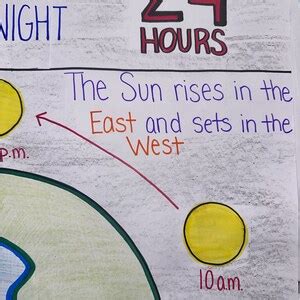 NIGHT
24
HOURS
The Sun rises in the
East and sets in the
West
p.m.
10 a.m.